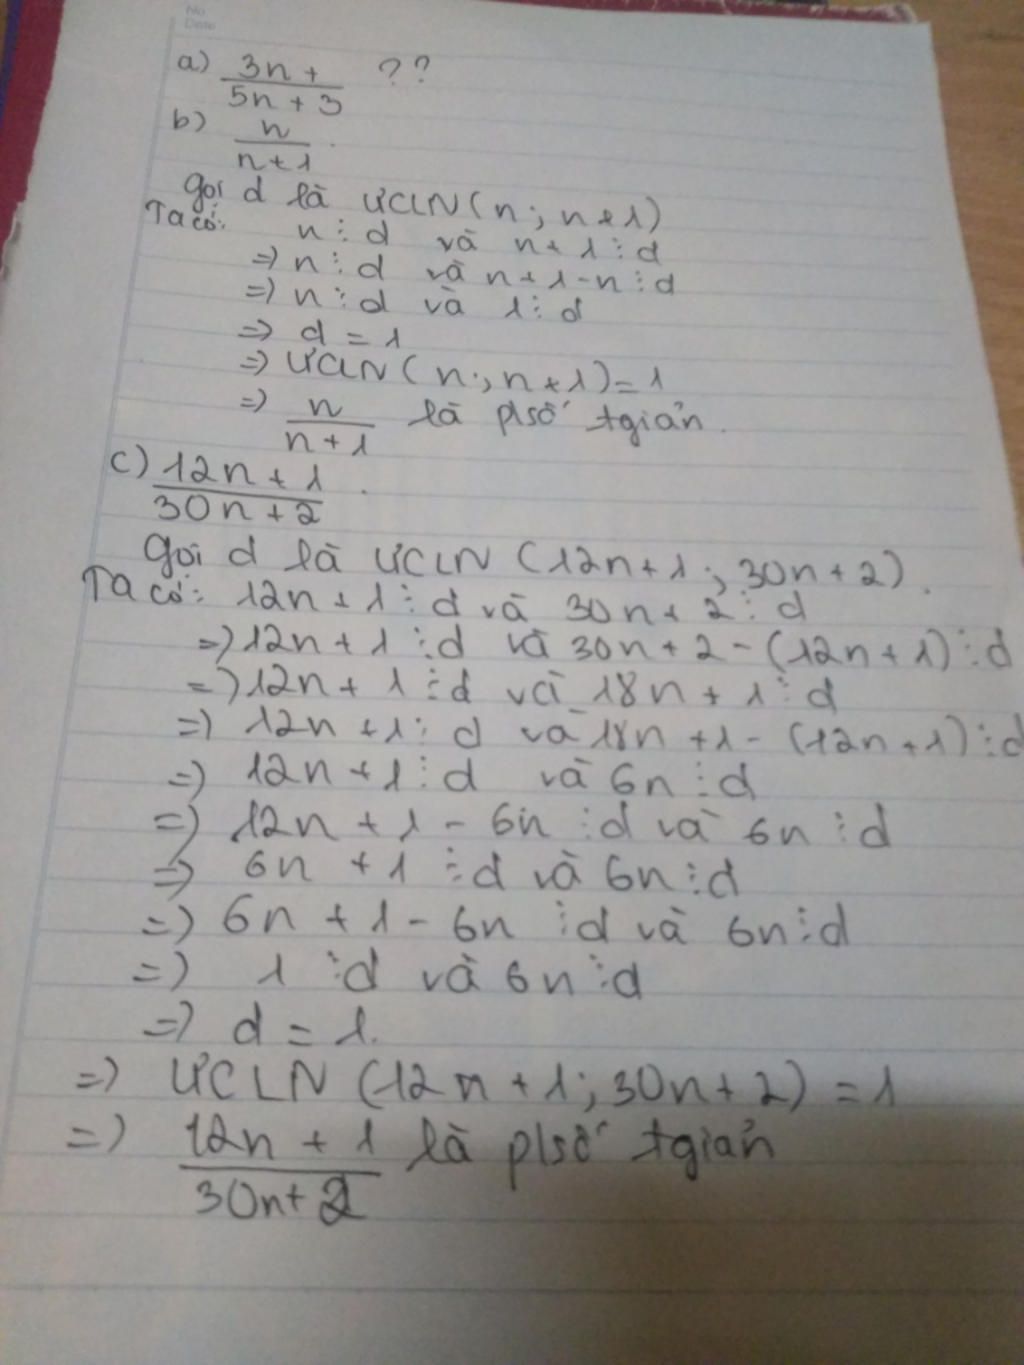 No
Date
a) 3n + / 5n + 3 ??
b) n / n+1 .
gọi d là ƯCLN(n; n+1)
Ta có: n ⋮ d và n+1 ⋮ d
=> n ⋮ d và n+1-n ⋮ d
=> n ⋮ d và 1 ⋮ d
=> d = 1
=> ƯCLN(n; n+1)=1
=> n / n+1 là p/số tgiản.
c) 12n+1 / 30n+2 .
gọi d là ƯCLN (12n+1; 30n+2).
Ta có: 12n+1 ⋮ d và 30n+2 ⋮ d
=> 12n+1 ⋮ d và 30n+2-(12n+1) ⋮ d
=> 12n+1 ⋮ d và 18n+1 ⋮ d
=> 12n+1 ⋮ d và 18n+1-(12n+1) ⋮ d
=> 12n+1 ⋮ d và 6n ⋮ d
=> 12n+1-6n ⋮ d và 6n ⋮ d
=> 6n+1 ⋮ d và 6n ⋮ d
=> 6n+1-6n ⋮ d và 6n ⋮ d
=> 1 ⋮ d và 6n ⋮ d
=> d = 1.
=> ƯCLN (12n+1; 30n+2) = 1
=> 12n+1 / 30n+2 là p/số tgiản